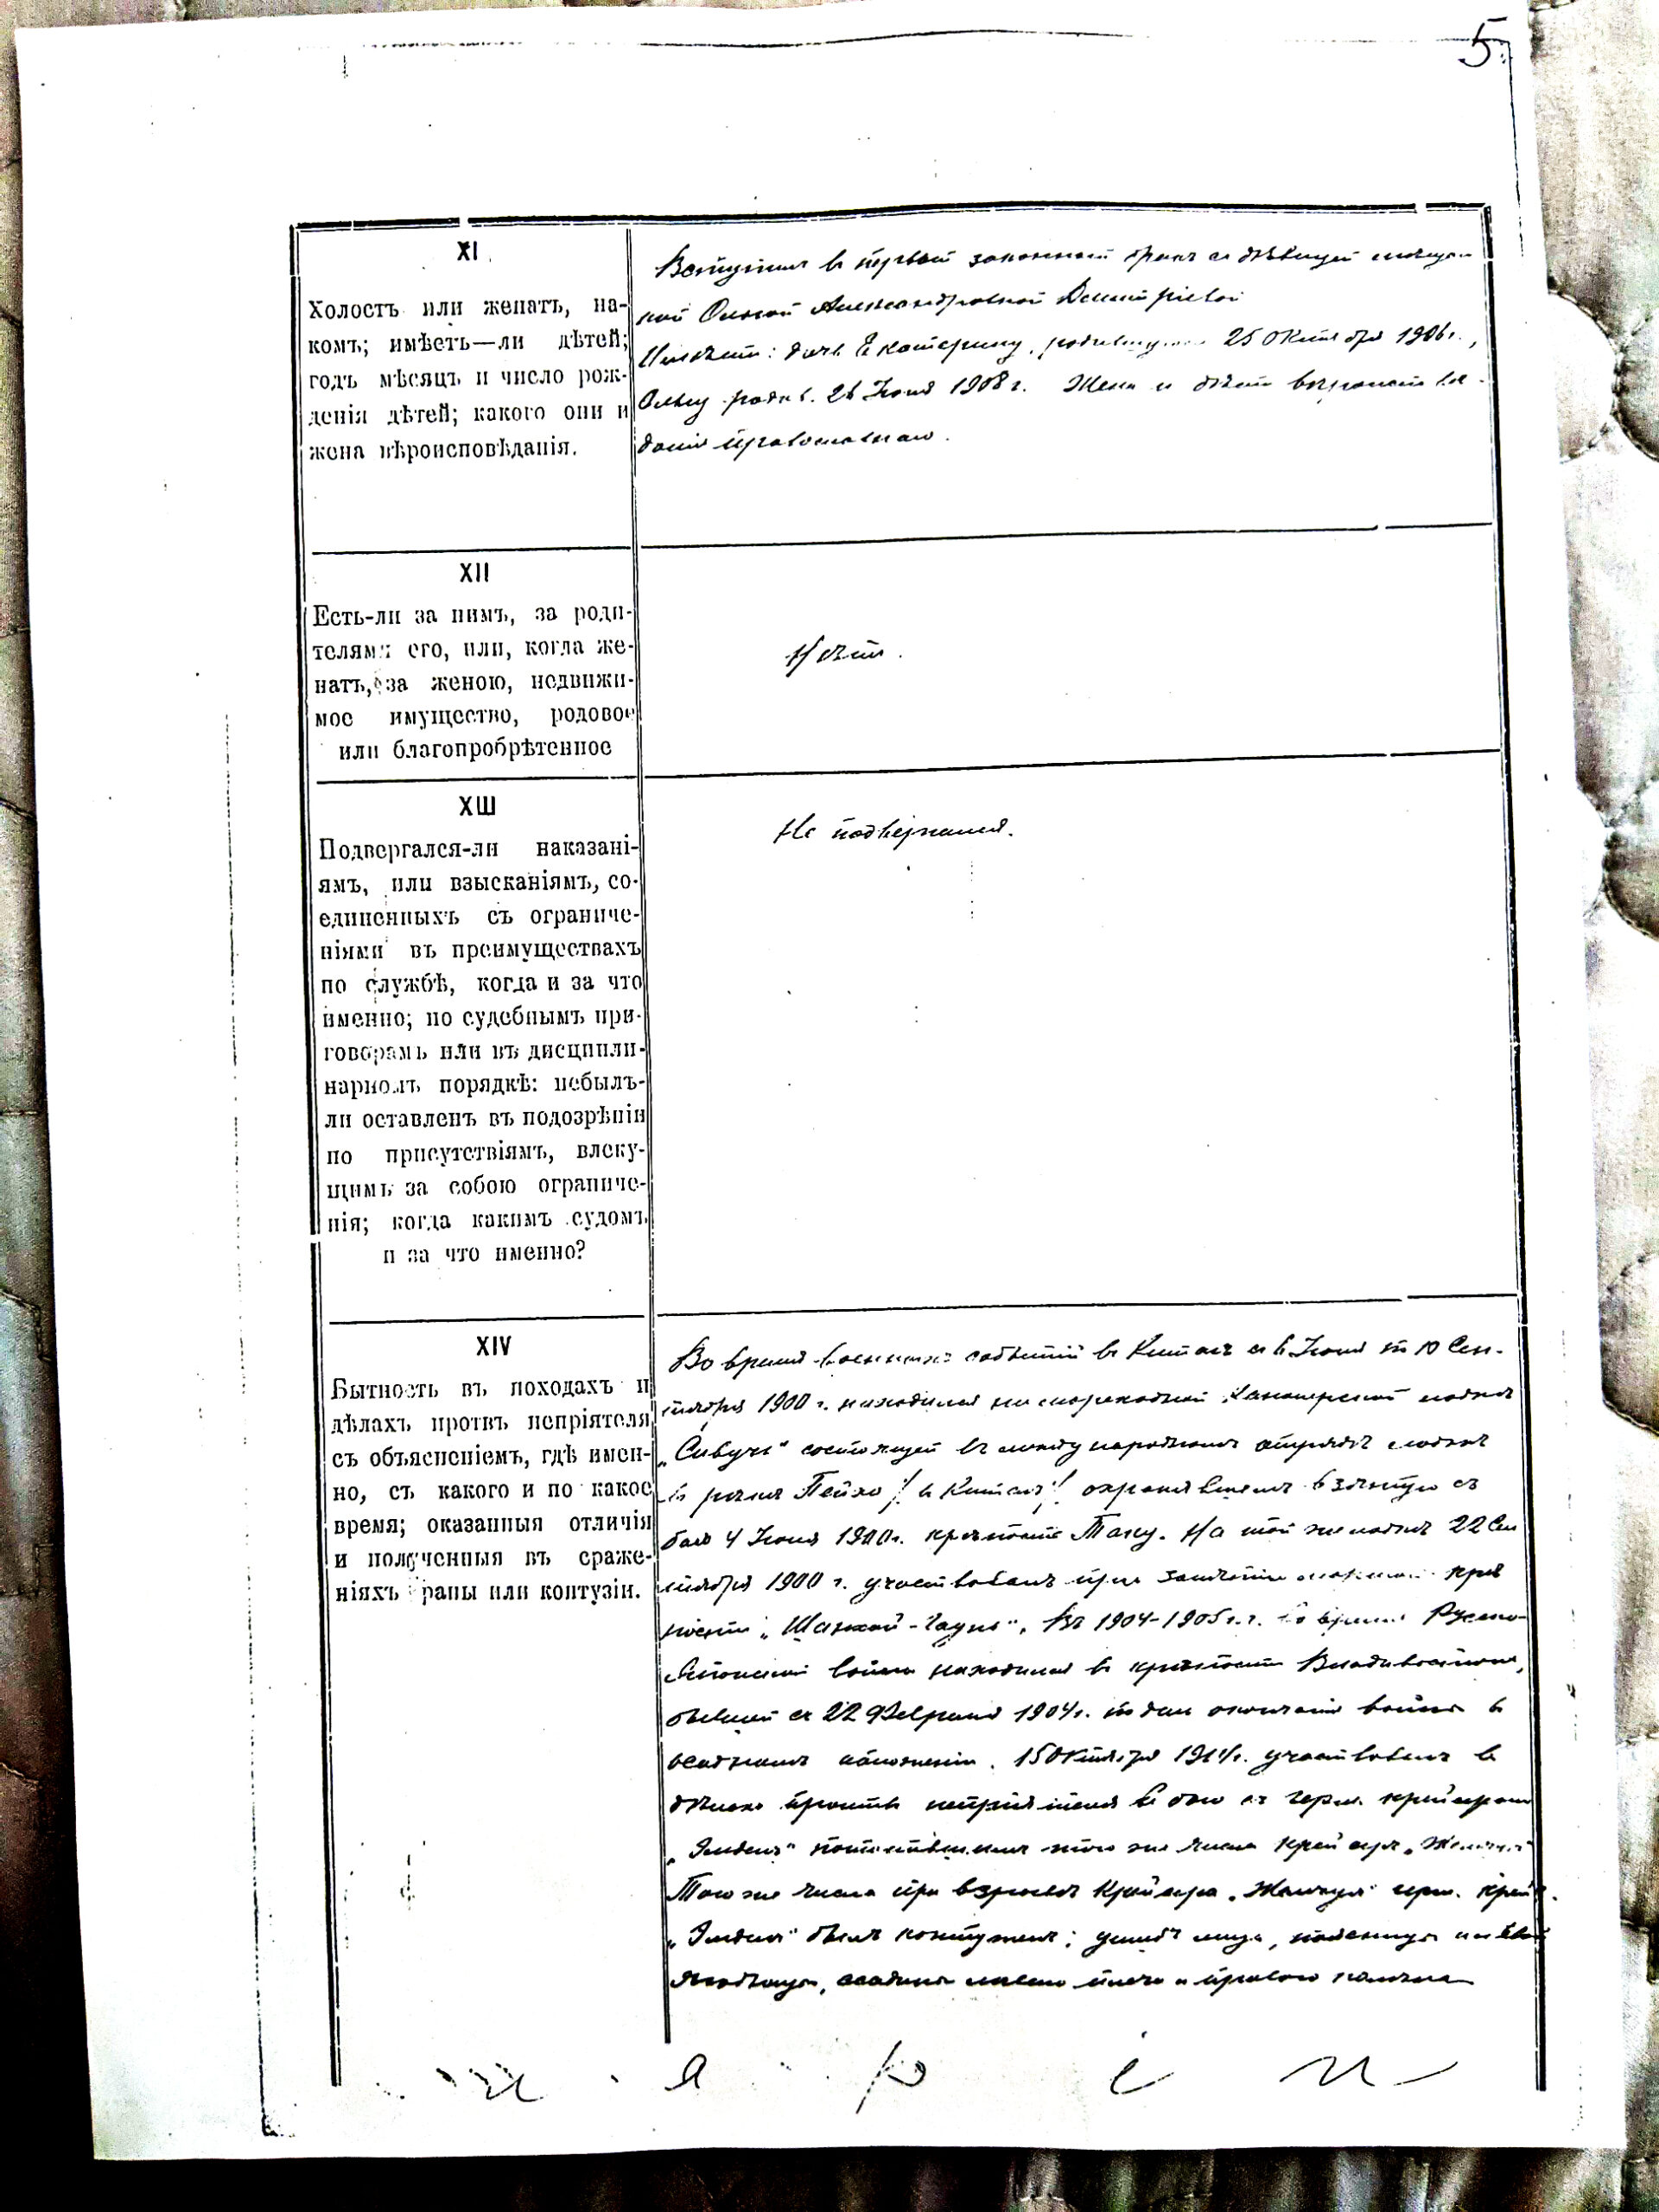 5
XI
Холостъ или женатъ, на-
комъ; имѣетъ—ли дѣтей;
годъ мѣсяцъ и число рож-
денія дѣтей; какого они и
жена вѣроисповѣданія.
Вступилъ въ первый законный бракъ съ дѣвицей мѣщан-
кой Ольгой Александровной
Имѣетъ: дочь Екатерину, родившуюся 25 Октября 1906 г.,
Ольгу родив. 26 1908 г. Жена и дѣти вѣроисповѣ-
данія православнаго.
XII
Есть-ли за нимъ, за роди-
телями его, или, когда же-
натъ, за женою, недвижи-
мое имущество, родовое
или благопробрѣтенное
Нѣтъ.
XIII
Подвергался-ли наказані-
ямъ, или взысканіямъ, со-
единенныхъ съ ограниче-
ніями въ преимуществахъ
по службѣ, когда и за что
именно; по судебнымъ при-
говорамъ или въ дисципли-
нарномъ порядкѣ: небылъ-
ли оставленъ въ подозрѣніи
по присутствіямъ, влеку-
щимъ за собою ограниче-
нія; когда какимъ судомъ
и за что именно?
Не подвергался.
XIV
Бытность въ походахъ и
дѣлахъ протвъ непріятеля
съ объясненіемъ, гдѣ имен-
но, съ какого и по какое
время; оказанныя отличія
и полученныя въ сраже-
ніяхъ раны или контузіи.
Во время военныхъ событій въ Китаѣ съ 6 Іюня по 10 Сен-
тября 1900 г. находился на мореходной канонерской лодкѣ
„Сивучъ" состоящей въ международномъ отрядѣ лодокъ
въ рѣкѣ Пейхо /въ Китаѣ/ охранявшемъ взятую съ
боя 4 Іюня 1900 г. крѣпость Таку. На той же лодкѣ 22 Сен
тября 1900 г. участвовалъ при занятіи крѣ
пости „Шанхай-Гауна". Въ 1904-1905 г.г. во время Русско-
Японской войны находился въ крѣпости Владивостокъ,
бывшей съ 22 Февраля 1904 г. по день окончанія войны въ
осадномъ положеніи. 15 Октября 1914 г. участвовалъ въ
дѣлахъ противъ непріятеля въ бою съ герм. крейсеромъ
„Эмденъ" потопившимъ того же числа крейсеръ „Жемчугъ"
Того же числа при взрывѣ крейсера „Жемчугъ" герм. крейс.
„Эмденъ" былъ контуженъ; ушибъ лица, поясницы и лѣвой
ягодицы, ссадина лѣваго плеча и праваго колѣна